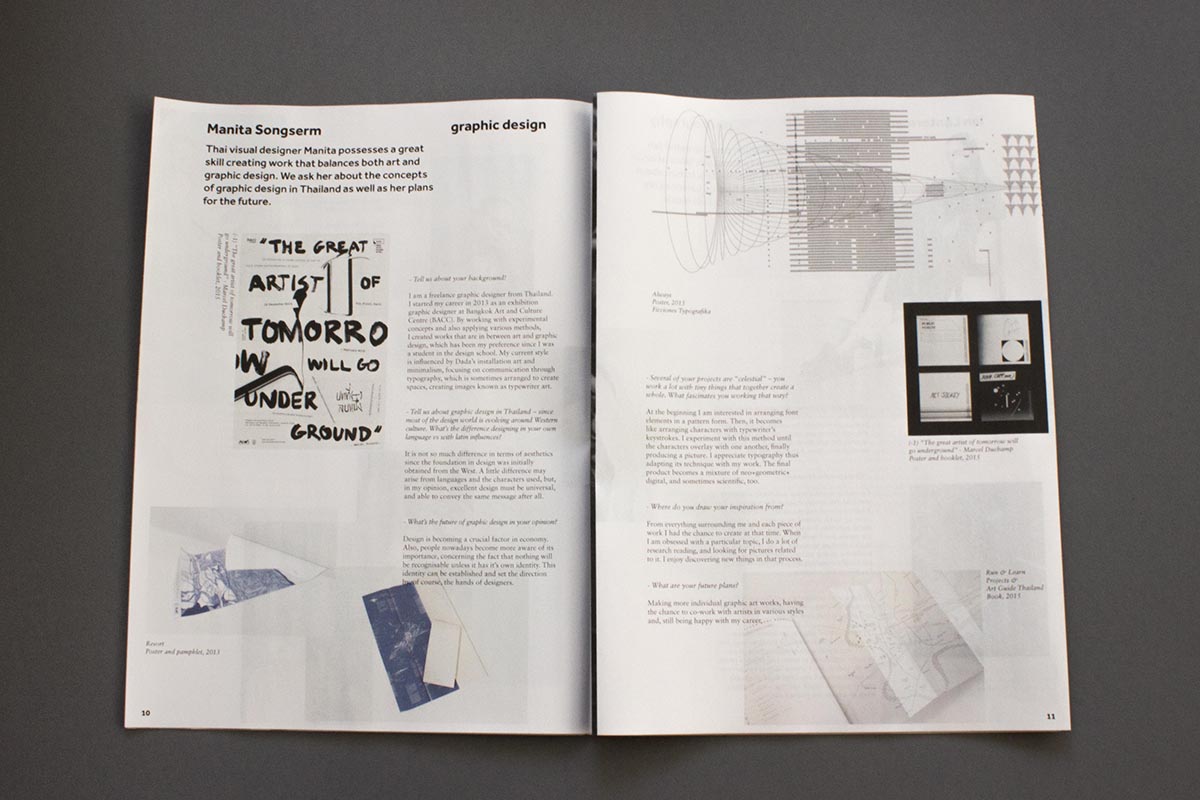 Manita Songserm
graphic design
Thai visual designer Manita possesses a great
skill creating work that balances both art and
graphic design. We ask her about the concepts
of graphic design in Thailand as well as her plans
for the future.
(-1) "The great artist of tomorrow will
go underground" - Marcel Duchamp
Poster and booklet, 2015
"THE GREAT
ARTIST OF
TOMORRO
W WILL GO
UNDER
GROUND"
- Tell us about your background?
I am a freelance graphic designer from Thailand.
I started my career in 2013 as an exhibition
graphic designer at Bangkok Art and Culture
Centre (BACC). By working with experimental
concepts and also applying various methods,
I created works that are in between art and graphic
design, which has been my preference since I was
a student in the design school. My current style
is influenced by Dada's installation art and
minimalism, focusing on communication through
typography, which is sometimes arranged to create
spaces, creating images known as typewriter art.
- Tell us about graphic design in Thailand – since
most of the design world is evolving around Western
culture. What's the difference designing in your own
language vs with latin influences?
It is not so much difference in terms of aesthetics
since the foundation in design was initially
obtained from the West. A little difference may
arise from languages and the characters used, but,
in my opinion, excellent design must be universal,
and able to convey the same message after all.
- What's the future of graphic design in your opinion?
Design is becoming a crucial factor in economy.
Also, people nowadays become more aware of its
importance, concerning the fact that nothing will
be recognisable unless it has it's own identity. This
identity can be established and set the direction
by, of course, the hands of designers.
Resort
Poster and pamphlet, 2013
10
Always
Poster, 2015
Ficciones Typografika
- Several of your projects are "celestial" – you
work a lot with tiny things that together create a
whole. What fascinates you working that way?
At the beginning I am interested in arranging font
elements in a pattern form. Then, it becomes
like arranging characters with typewriter's
keystrokes. I experiment with this method until
the characters overlay with one another, finally
producing a picture. I appreciate typography thus
adapting its technique with my work. The final
product becomes a mixture of neo+geometric+
digital, and sometimes scientific, too.
- Where do you draw your inspiration from?
From everything surrounding me and each piece of
work I had the chance to create at that time. When
I am obsessed with a particular topic, I do a lot of
research reading, and looking for pictures related
to it. I enjoy discovering new things in that process.
- What are your future plans?
Making more individual graphic art works, having
the chance to co-work with artists in various styles
and, still being happy with my career,
(-1) "The great artist of tomorrow will
go underground" - Marcel Duchamp
Poster and booklet, 2015
Run & Learn
Projects &
Art Guide Thailand
Book, 2015
11